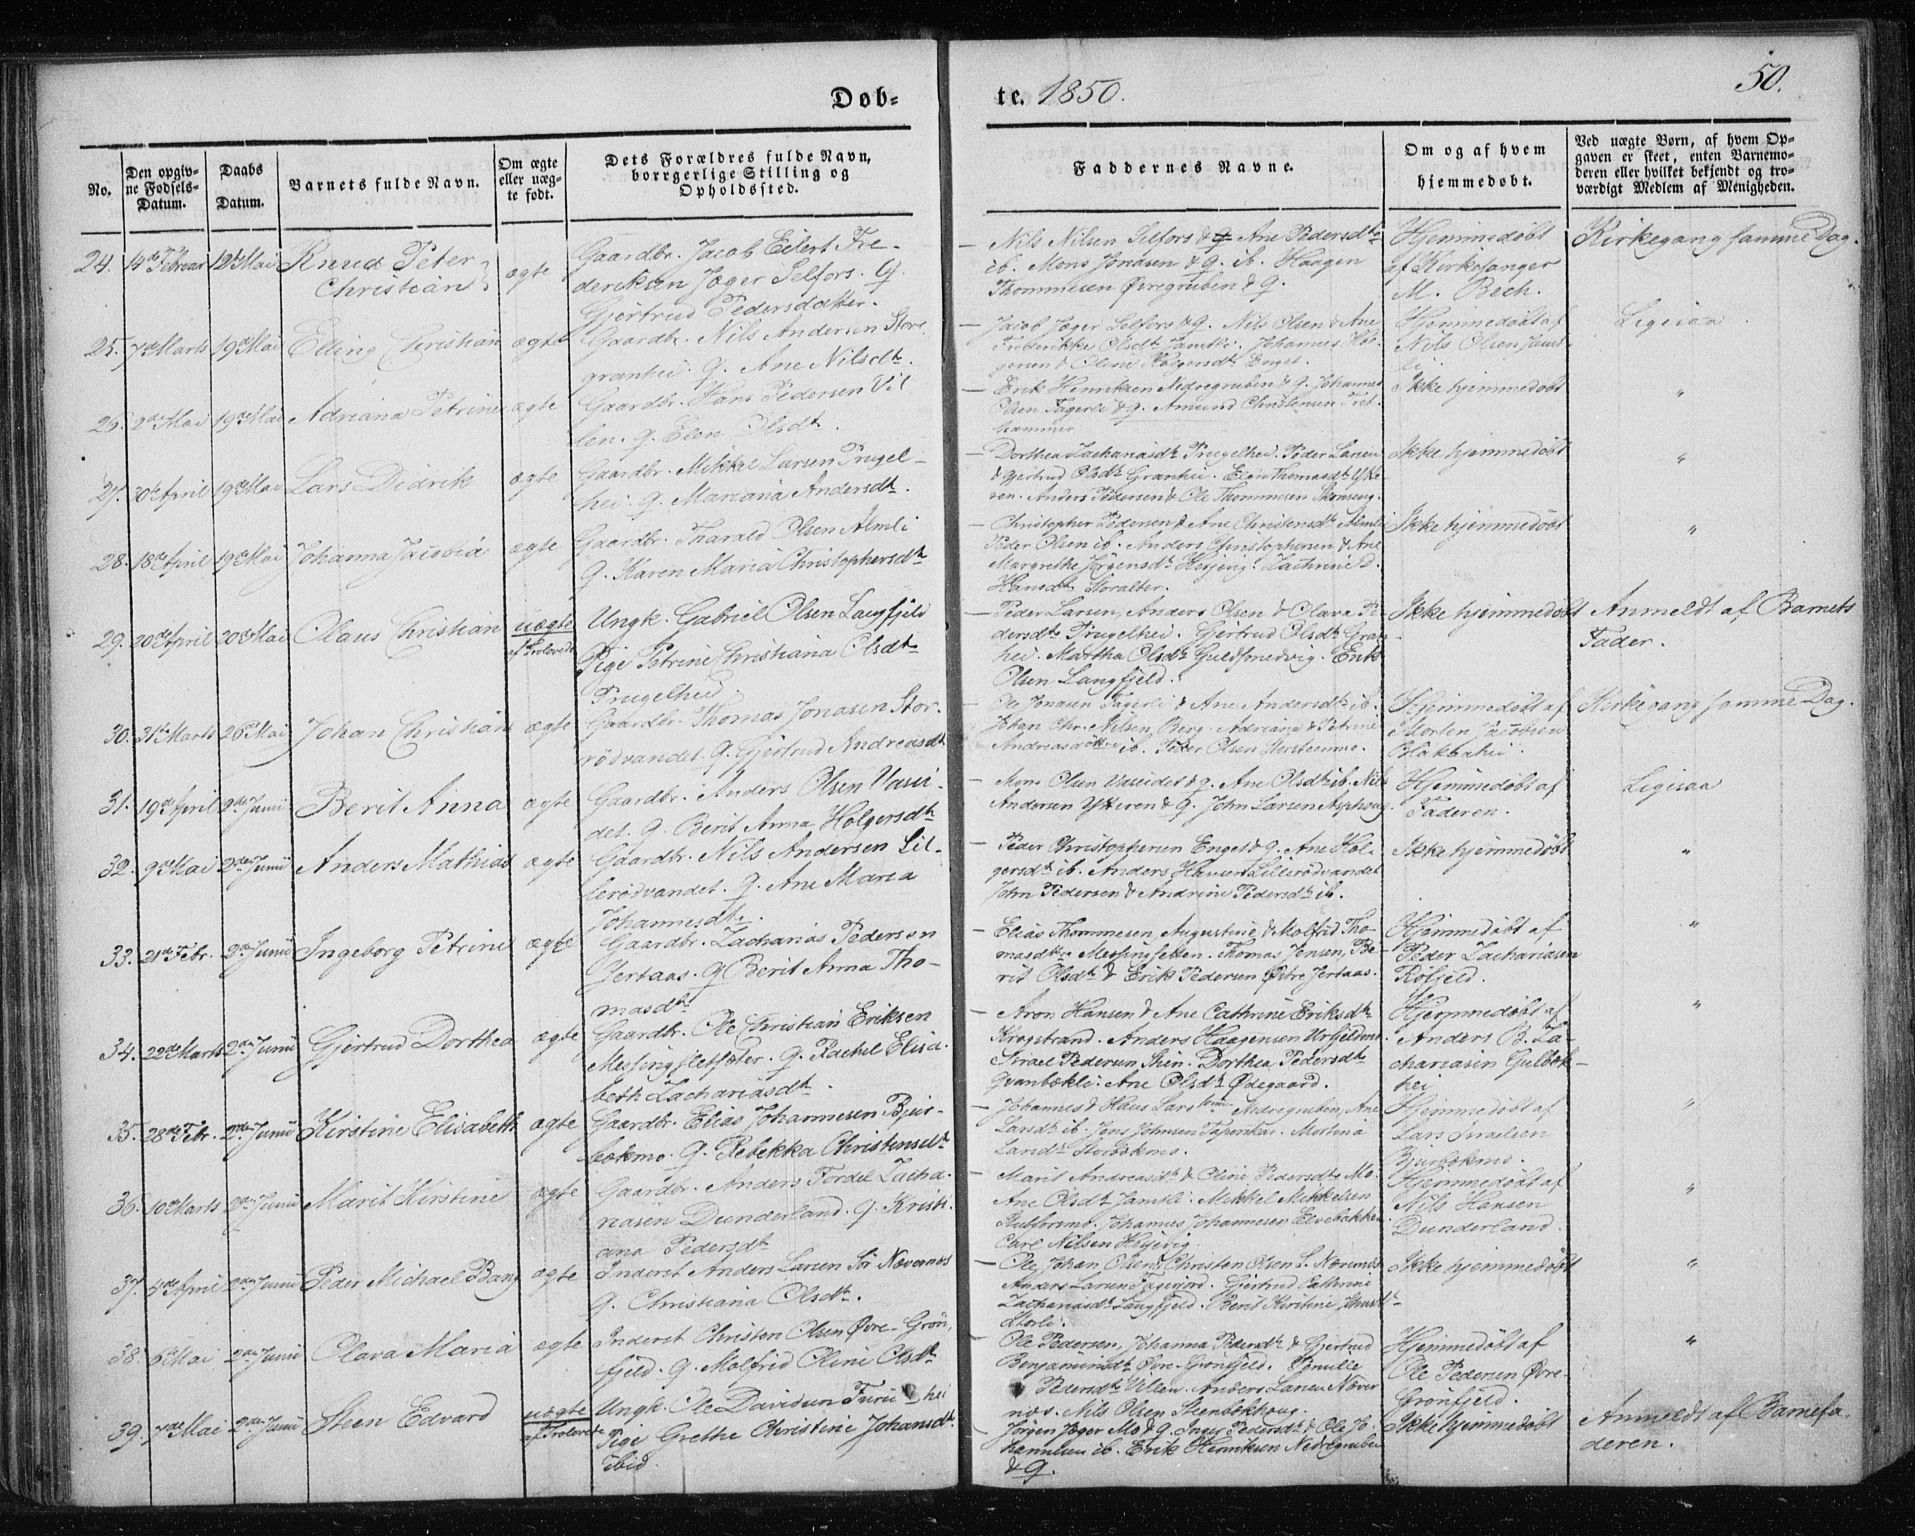 50.
Døb-
te. 1850.
No.
Den opgiv-
ne Fødsels-
Datum.
Daabs
Datum.
Barnets fulde Navn.
Om ægte
eller uæg-
te født.
Dets Forældres fulde Navn,
borrgerlige Stilling og
Opholdssted.
Faddernes Navne.
Om og af hvem
hjemmedøbt.
Ved uægte Børn, af hvem Op-
gaven er skeet, enten Barnemo-
deren eller hvilket bekjendt og tro-
værdigt Medlem af Menigheden.
24. 14de Februar 12te Mai Knud Peter
Christian
ægte
Gaardbr. Jacob Eilert Fre-
deriksen Jæger Selfors. Q.
Gjertrud Pedersdatter.
Nils Nilsen Selfors & Q Ane Pedersdtr
ib. Mons Jonasen & Q. ib. Haagen
Thommesen Øvregruben & Q.
Hjemmedøbt
af Kirkesanger
M. Bech.
Kirkegang samme Dag.
25. 7de Marts 19de Mai Elling Christian ægte
Gaardbr. Nils Andersen Store
granhei. Q. Ane Nilsdtr.
Jacob Jæger Selfors & Q. Nils Olsen & Ane
Frederikke Olsdtr Jamtli. Johannes Hol-
gersen & Oline Holgersdtr Enget.
Hjemmedøbt af
Nils Olsen Jamt-
li
Ligesaa
26. 2den Mai 19de Mai Adriana Petrine ægte
Gaardbr. Hans Pedersen Vil
len. Q. Elen Olsdtr.
Erik Henriksen Nedregruben & Q. Johannes
Olsen Fagerli & Q. Amund Christensen
hammer
Ikke hjemmedøbt
"
27. April 19de Mai Lars Didrik ægte
Gaardbr. Mikkel Larsen Prugel-
hei. Q. Mariana Andersdtr.
Dorthea Zachariasdtr Prugelhei. Peder Larsen
& Gjertrud Olsdtr Granhei. Elen Thomasdtr Ytte-
ren. Anders Pedersen & Ole Thommesen Skonseng.
Ikke hjemmedøbt
"
28. 18de April 19de Mai Johanna Jacobia ægte
Gaardbr. Tharald Olsen Almli
Q. Karen Maria Christophersdtr
Christopher Pedersen & Ane Christensdtr Almli
Peder Olsen ib. Anders Christophersen & Ane
Margrethe Jørgensdtr Hesjevig. Cathrine D.
Hansdtr Storalter.
Ikke hjemmedøbt
"
29. 20de April 20de Mai Olaus Christian uægte
af Trolovede
Ungk. Gabriel Olsen Langfjeld
Pige Petrine Christiana Olsdtr
Prugelhei.
Peder Larsen, Anders Olsen & Olava Pe
dersdtr Prugelhei. Gjertrud Olsdtr Gran
hei. Martha Olsdtr Guldsmedvig. Erik
Olsen Langfjeld.
Ikke hjemmedøbt
Anmeldt af Barnets
Fader.
30. 31te Marts 26de Mai Johan Christian ægte
Gaardbr. Thomas Jonasen Stor-
rødvandet. Q. Gjertrud Andreasdtr
Ole Jonasen Fagerli & Ane Andersdtr ib.
Johan Chr. Nilsen Berg. Adriana & Petrine
Andreasdøttre ib. Peder Olsen
Hjemmedøbt af
Morten Jacobsen
Blakbakhei.
Kirkegang samme Dag.
31. 19de April 2den Junii Berit Anna ægte
Gaardbr. Anders Olsen Vasei-
det. Q. Berit Anna Holgersdtr
Mons Olsen Vaseidet & Q. Ane Olsdtr ib. Nils
Andersen Ytteren & Q. John Larsen Alphoug
Hjemmedøbt af
Faderen.
Ligesaa
32. 9de Mai 2den Junii Anders Mathias ægte
Gaardbr. Nils Andersen Lil-
lerødvandet. Q. Ane Maria
Johannesdtr.
Peder Christophersen Enget & Q. Ane Hol-
gersdtr ib. Anders Hansen Lillerødvandet
John Pedersen & Andrine Pedersdtr ib.
Ikke hjemmedøbt
"
33. 21de Febr. 2den Junii Ingeborg Petrine ægte
Gaardbr. Zacharias Pedersen
Jertaas. Q Berit Anna Tho-
masdtr
Elias Thommesen, Augustine & Molfrid Tho-
masdtre Messingsletten. Thomas Jensen, Be-
rit Olsdtr & Erik Pedersen Østre Jertaas.
Hjemmedøbt af
Peder Zachariasen
Rofjeld.
"
34. 22de Marts 2den Junii Gjertrud Dorthea ægte
Gaardbr. Ole Christian Eriksen
Messingsletforter. Q. Rachel Elisa-
beth Zachariasdtr.
Aron Hansen & Ane Cathrine Eriksdtr
Krogstrand. Anders Haagensen Urfjeldmo.
Israel Pedersen Stien. Dorthea Pedersdtr
Qvanbækli. Ane Olsdtr Ødegaard.
Hjemmedøbt af
Anders B. Za-
chariasen Gulbæk-
hei
"
35. 28de Febr. 2den Junii Kirstine Elisabeth ægte
Gaardbr. Elias Johannesen Bjur-
bækmo. Q. Rebekka Christensdtr
Johannes & Haus Nedregruben, Ane
Larsdtr ib. Jens Johnsen Taperskar. Mortina
Larsdtr Storbækmo.
Hjemmedøbt af
Lars Israelsen
Bjurbækmo.
"
36. 10de Marts 2den Junii Marit Kirstine ægte
Gaardbr. Anders Fordel Zacha-
riasen Dunderland. Q. Kristi-
ana Pedersdtr
Marit Andreasdtr & Oline Pedersdtr Mo.
Ane Olsdtr Jamtli. Mikkel Mikkelsen
Selforsmo. Johannes Johannesen Elvebakken
Carl Nilsen Hesjevig
Hjemmedøbt af
Nils Hansen
Dunderland.
"
37. 4de April 2den Junii Peder Michael Bang ægte
Inderst Anders Larsen Sør Nævernæs
Q. Christiana Olsdtr.
Ole Johan Olsen & Christen Olsen S. Nævernæs
Anders Larsen Fagerjord. Gjertrud Cathrine
Zachariasdtr Langfjeld. Berit Kirstine
Storli.
Ikke hjemmedøbt
"
38. 6te Mai 2den Junii Olava Maria ægte
Inderst Christen Olsen Øvre-Grøn-
fjeld. Q. Molfrid Oline Olsdtr
Ole Pedersen, Johanna Pedersdtr & Gjertrud
Benjaminsdtr Øvre-Grønfjeld. Pernille
Pedersdtr Villen. Anders Larsen Næver
næs. Nils Olsen Stenbækhoug.
Hjemmedøbt af
Ole Pedersen Øvre-
Grønfjeld.
"
39. 7de Mai 2den Junii Steen Edvard uægte
af Trolovede
Ungk. Ole Davidsen Furuhei
Pige Grethe Christine Johansdtr
ibid.
Jørgen Jæger Mo & Q. Inger Pedersdtr & Ole Jo-
hannesen ib. Erik Henriksen Nedregruben
& Q.
Ikke hjemmedøbt
Anmeldt af Barnefa
deren.